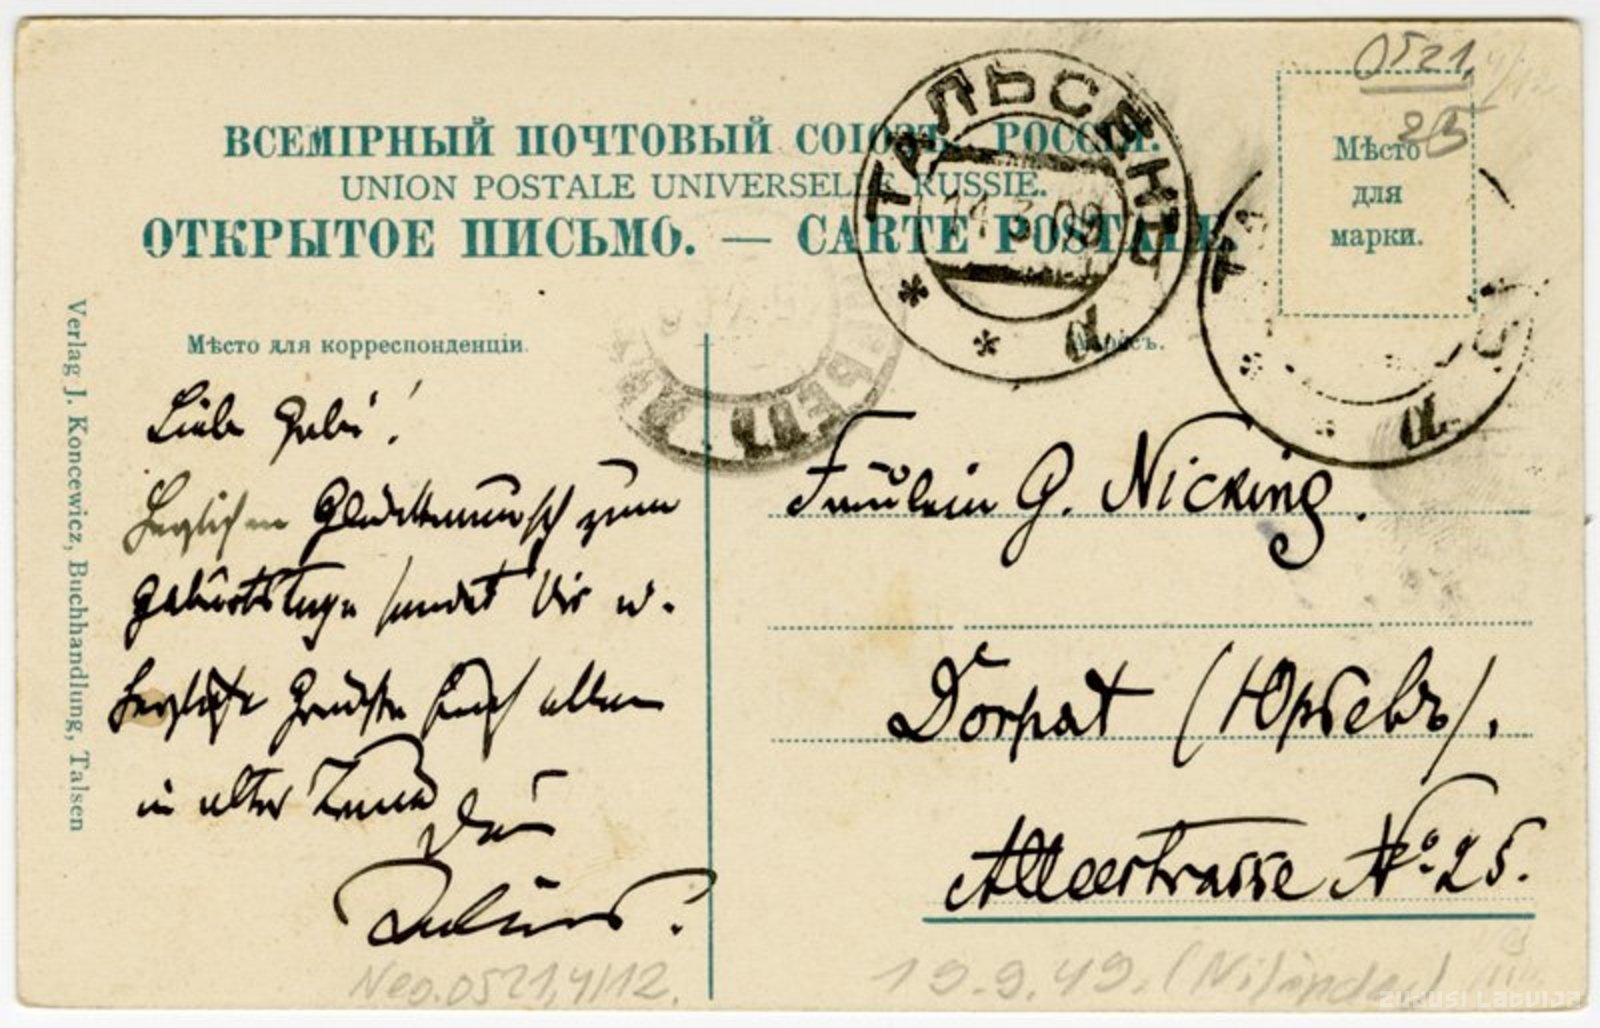 0521
4/12
25
ВСЕМІРНЫЙ ПОЧТОВЫЙ СОЮЗЪ. РОССІЯ.
UNION POSTALE UNIVERSELLE RUSSIE.
ОТКРЫТОЕ ПИСЬМО. — CARTE POSTALE
Мѣсто
для
марки.
ТАЛЬСЕНЪ
14.3.09
а
ТА
а
Мѣсто для корреспонденціи.
Адресъ.
Verlag J. Koncewicz, Buchhandlung, Talsen
Liebe Gabi!
Herzlichen Glückwunsch zum
Geburtstage sendet Dir u.
herzliche Grüsse Euch allen
in alter Treue
Dein
Julius.
Fräulein G. Nicking.
Dorpat (Юрьевъ).
Alleestrasse № 25.
Neg. 0521,4/12.
19.9.49.
ZUDUSI LATVIJA